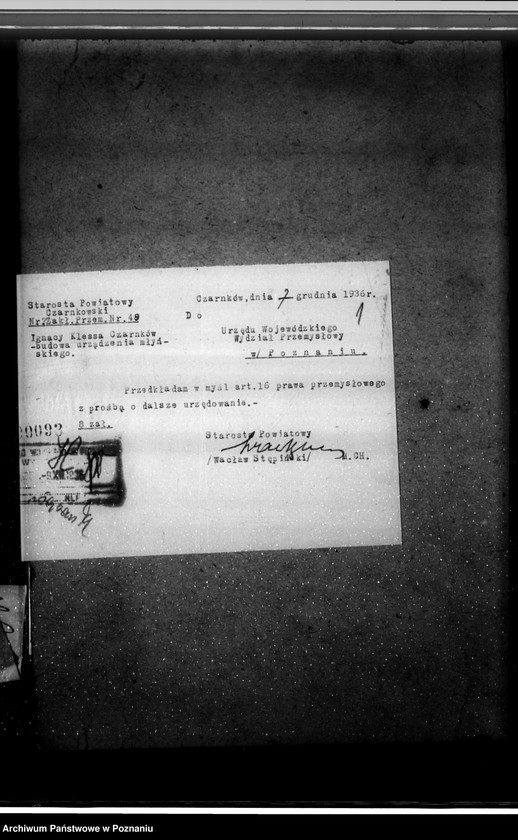 Czarnków, dnia 7 grudnia 1936r.
1
Starosta Powiatowy
Czarnkowski
Nr.Zakł.Przem.Nr.48
Ignacy Klessa Czarnków
-budowa urządzenia młyń-
skiego.
Do
Urzędu Wojewódzkiego
Wydział Przemysłowy
w/ Poznaniu.
Przedkładam w myśl art.16 prawa przemysłowego
z prośbą o dalsze urzędowanie.-
8 zał.
Starosta Powiatowy
/Wacław Stępiński/
M.CH.
Archiwum Państwowe w Poznaniu